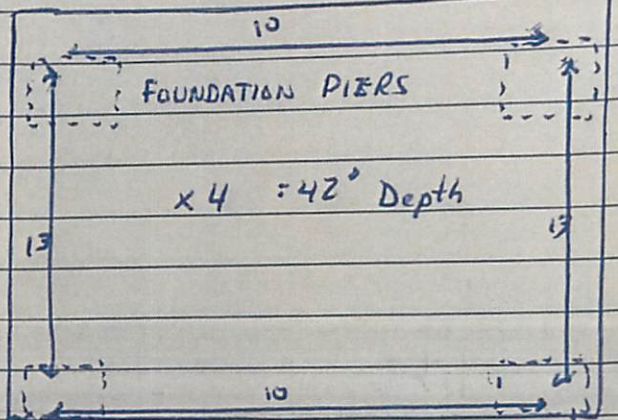 10
FOUNDATION PIERS
x 4 = 42" Depth
13 13
10